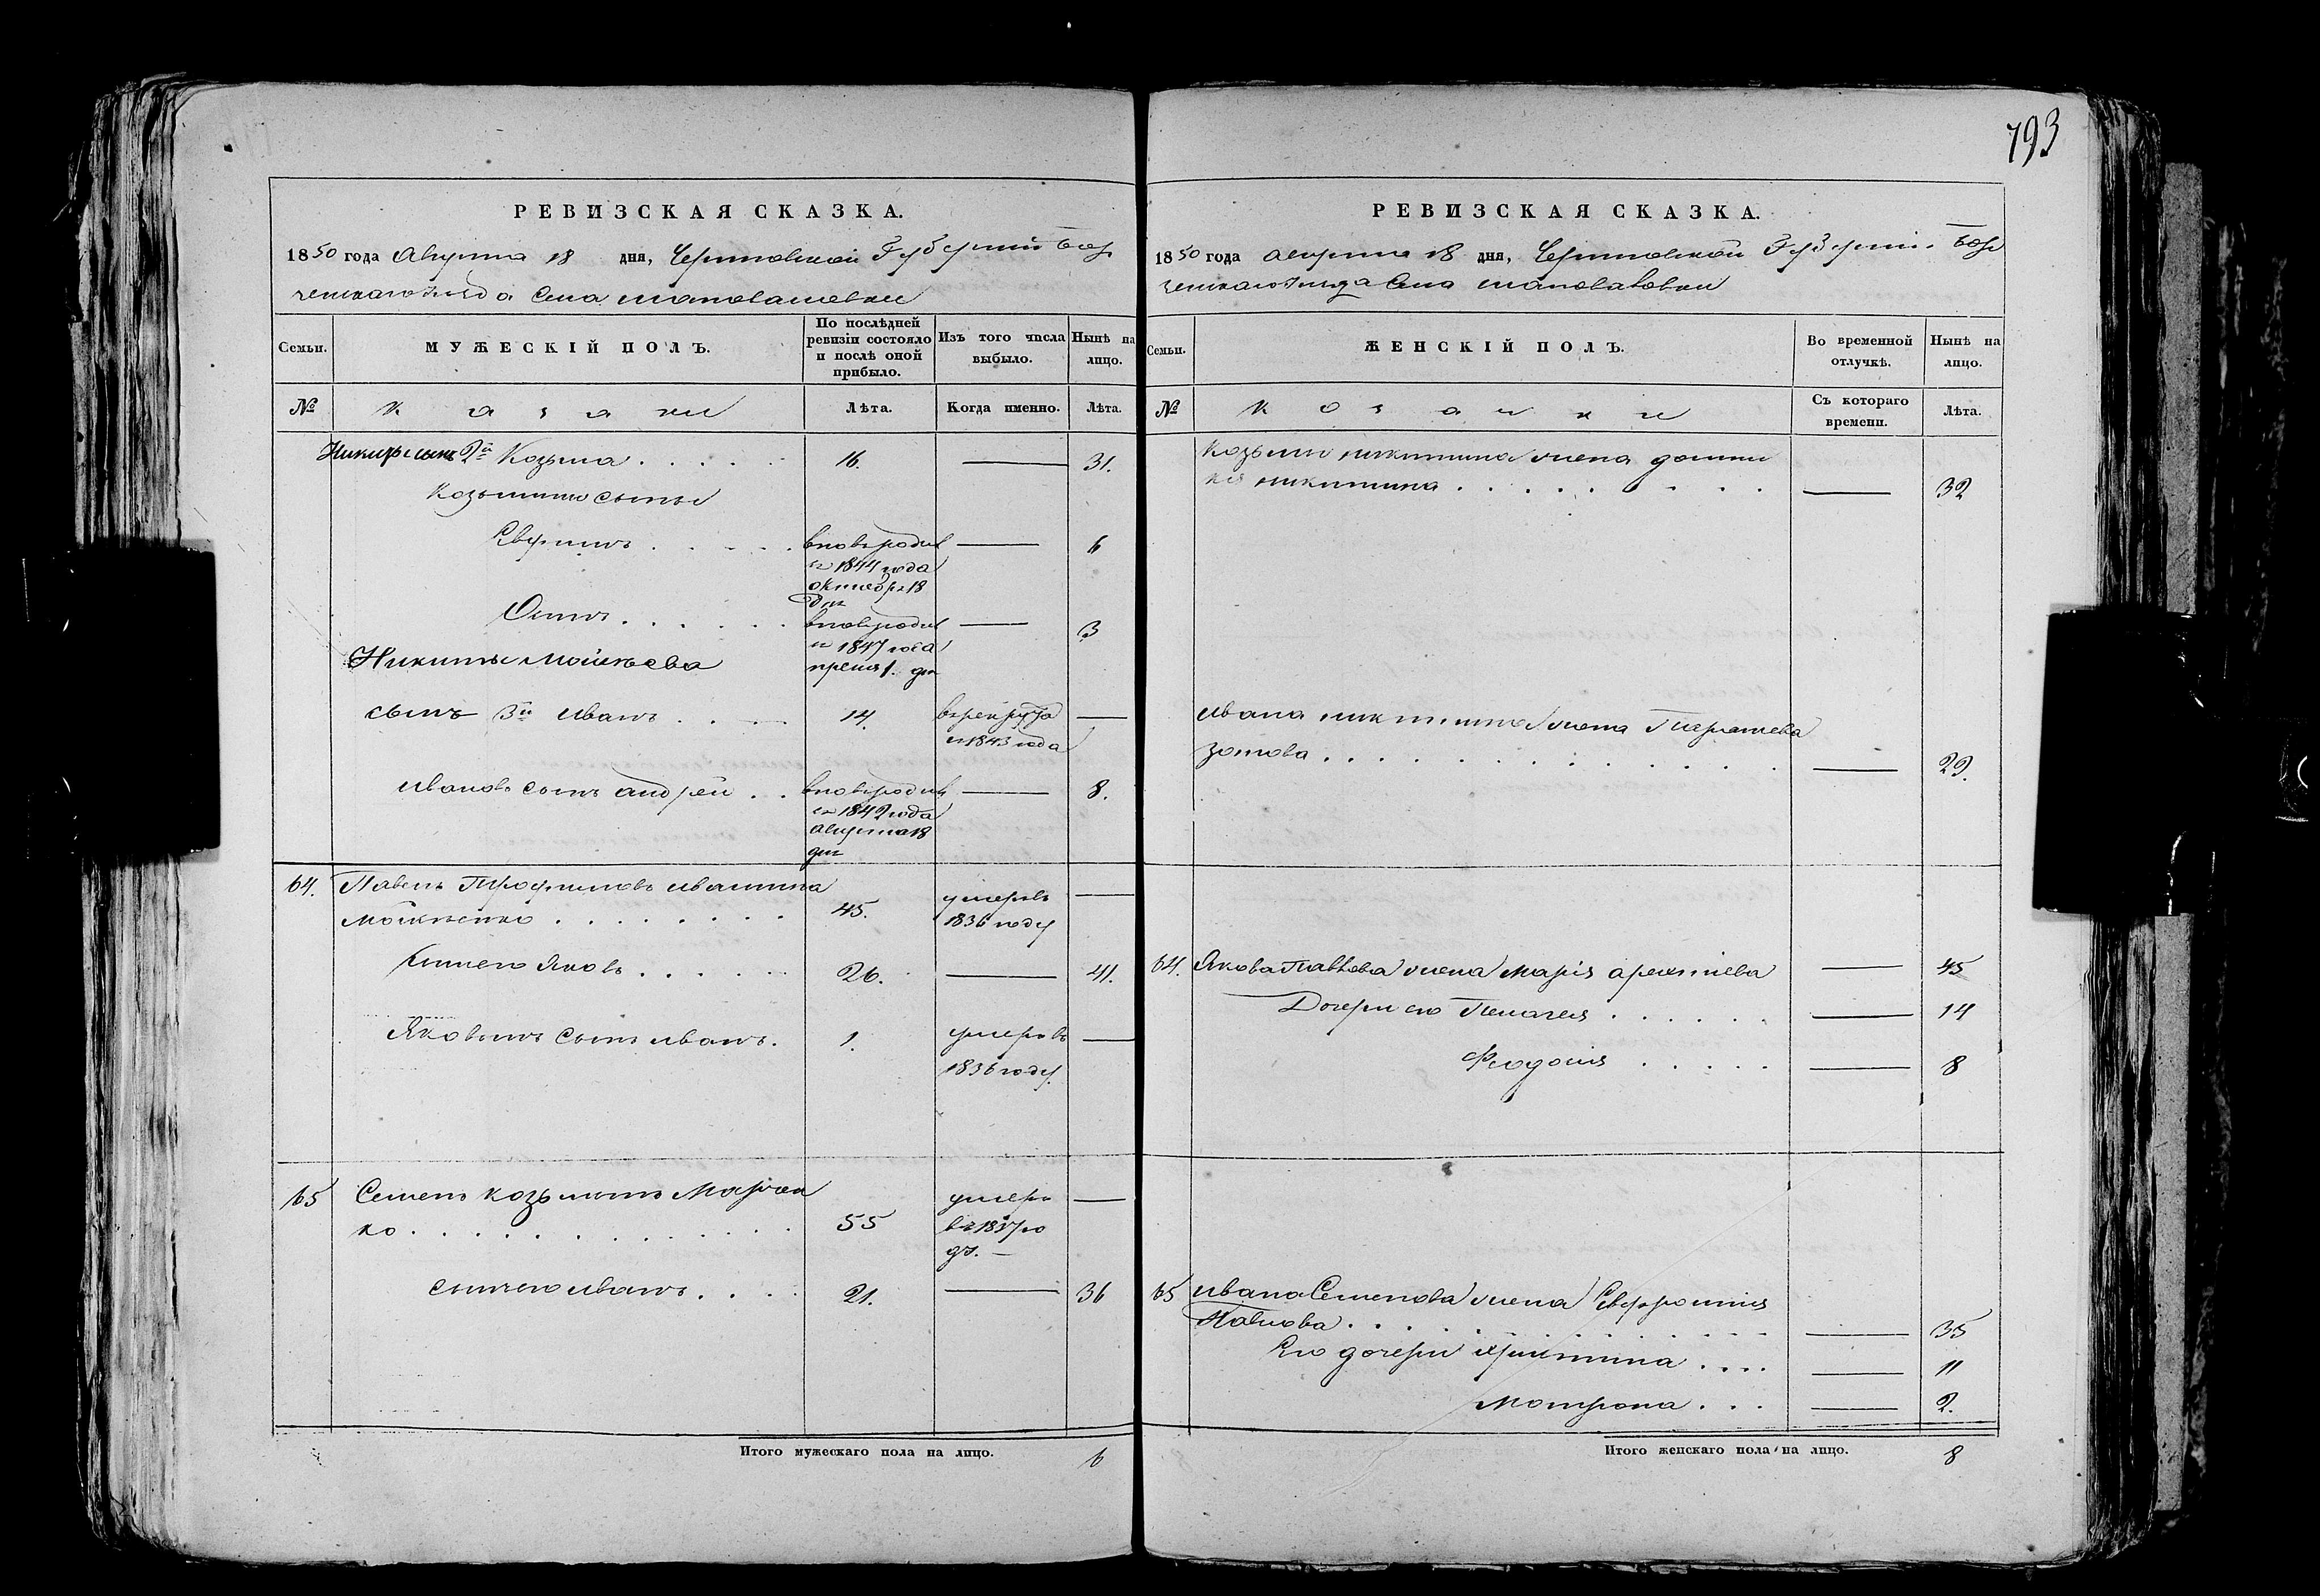 793
РЕВИЗСКАЯ СКАЗКА.
1850 года Августа 18 дня, Черниговской Губернии Бор
зенскаго Уезда Села Шаповаловки
Семьи.
МУЖЕСКІЙ ПОЛЪ.
По послѣдней ревизіи состояло и послѣ оной прибыло.
Изъ того числа выбыло.
Нынѣ на лицо.
№
Казаки
Лѣта.
Когда именно.
Лѣта.
Никиты сынъ 2й Козьма . . . . . 16. — 31.
Козьмины сыны
. . . . . вновь родил — 6
ся 1844 года
октября 18
дня
Осипъ . . . . . . вновь родил — 3
ся 1847 года
апреля 1. дня
Никиты Мойсеева
сынъ 3й Иванъ . . . 14. въ рекрута —
съ 1843 года
Ивановъ сынъ Андрей . . вновь родил — 8.
ся 1842 года
августа 18
дня
64. Павелъ Трофимовъ
Мойсеенко . . . . . . . 45. умеръ въ —
1836 году
Сынъ его Яковъ . . . . . 26. — 41.
Яковъ сынъ Иванъ. 1. умеръ въ —
1836 году.
65 Семенъ Козьминъ Марчен
ко . . . . . . . . . . . . 55 умеръ —
въ 1837 го
дъ. —
сынъ его Иванъ . . . . 21. — 36
Итого мужескаго пола на лицо. 6
РЕВИЗСКАЯ СКАЗКА.
1850 года августа 18 дня, Черниговской Губернии Бор
зенскаго Уезда Села Шаповаловки
Семьи.
ЖЕНСКІЙ ПОЛЪ.
Во временной отлучкѣ.
Нынѣ на лицо.
№
Козачки
Съ котораго времени.
Лѣта.
Козьмы Никитина жена Домни
кія Никитина . . . . . . . . — 32
Ивана Никитина жена
Зотова . . . . . . . . . . . — 29.
64. Якова Павлова жена Марія — 45
Дочери его Пелагея . . . . . . — 14
Феодосія . . . . . — 8
65 Ивана Семенова жена Евфросинія
Павлова . . . . . . . . . . . — 35
Его дочери Христина . . . . — 11
Мотрона . . . — 2.
Итого женскаго пола на лицо. 8